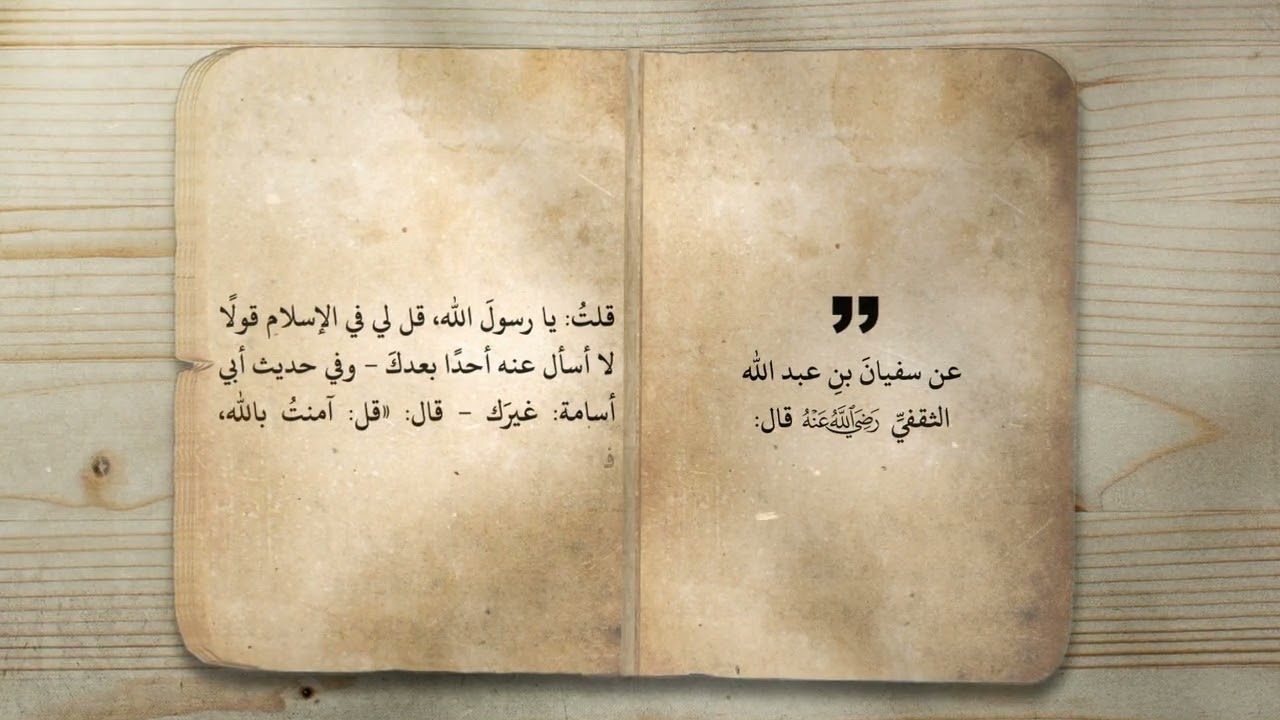 عن سفيانَ بنِ عبد الله
الثقفيِّ رَضِيَ اللَّهُ عَنْهُ قال:
قلتُ: يا رسولَ الله، قل لي في الإسلامِ قولًا
لا أسأل عنه أحدًا بعدكَ – وفي حديث أبي
أسامة: غيرَك – قال: «قل: آمنتُ بالله،